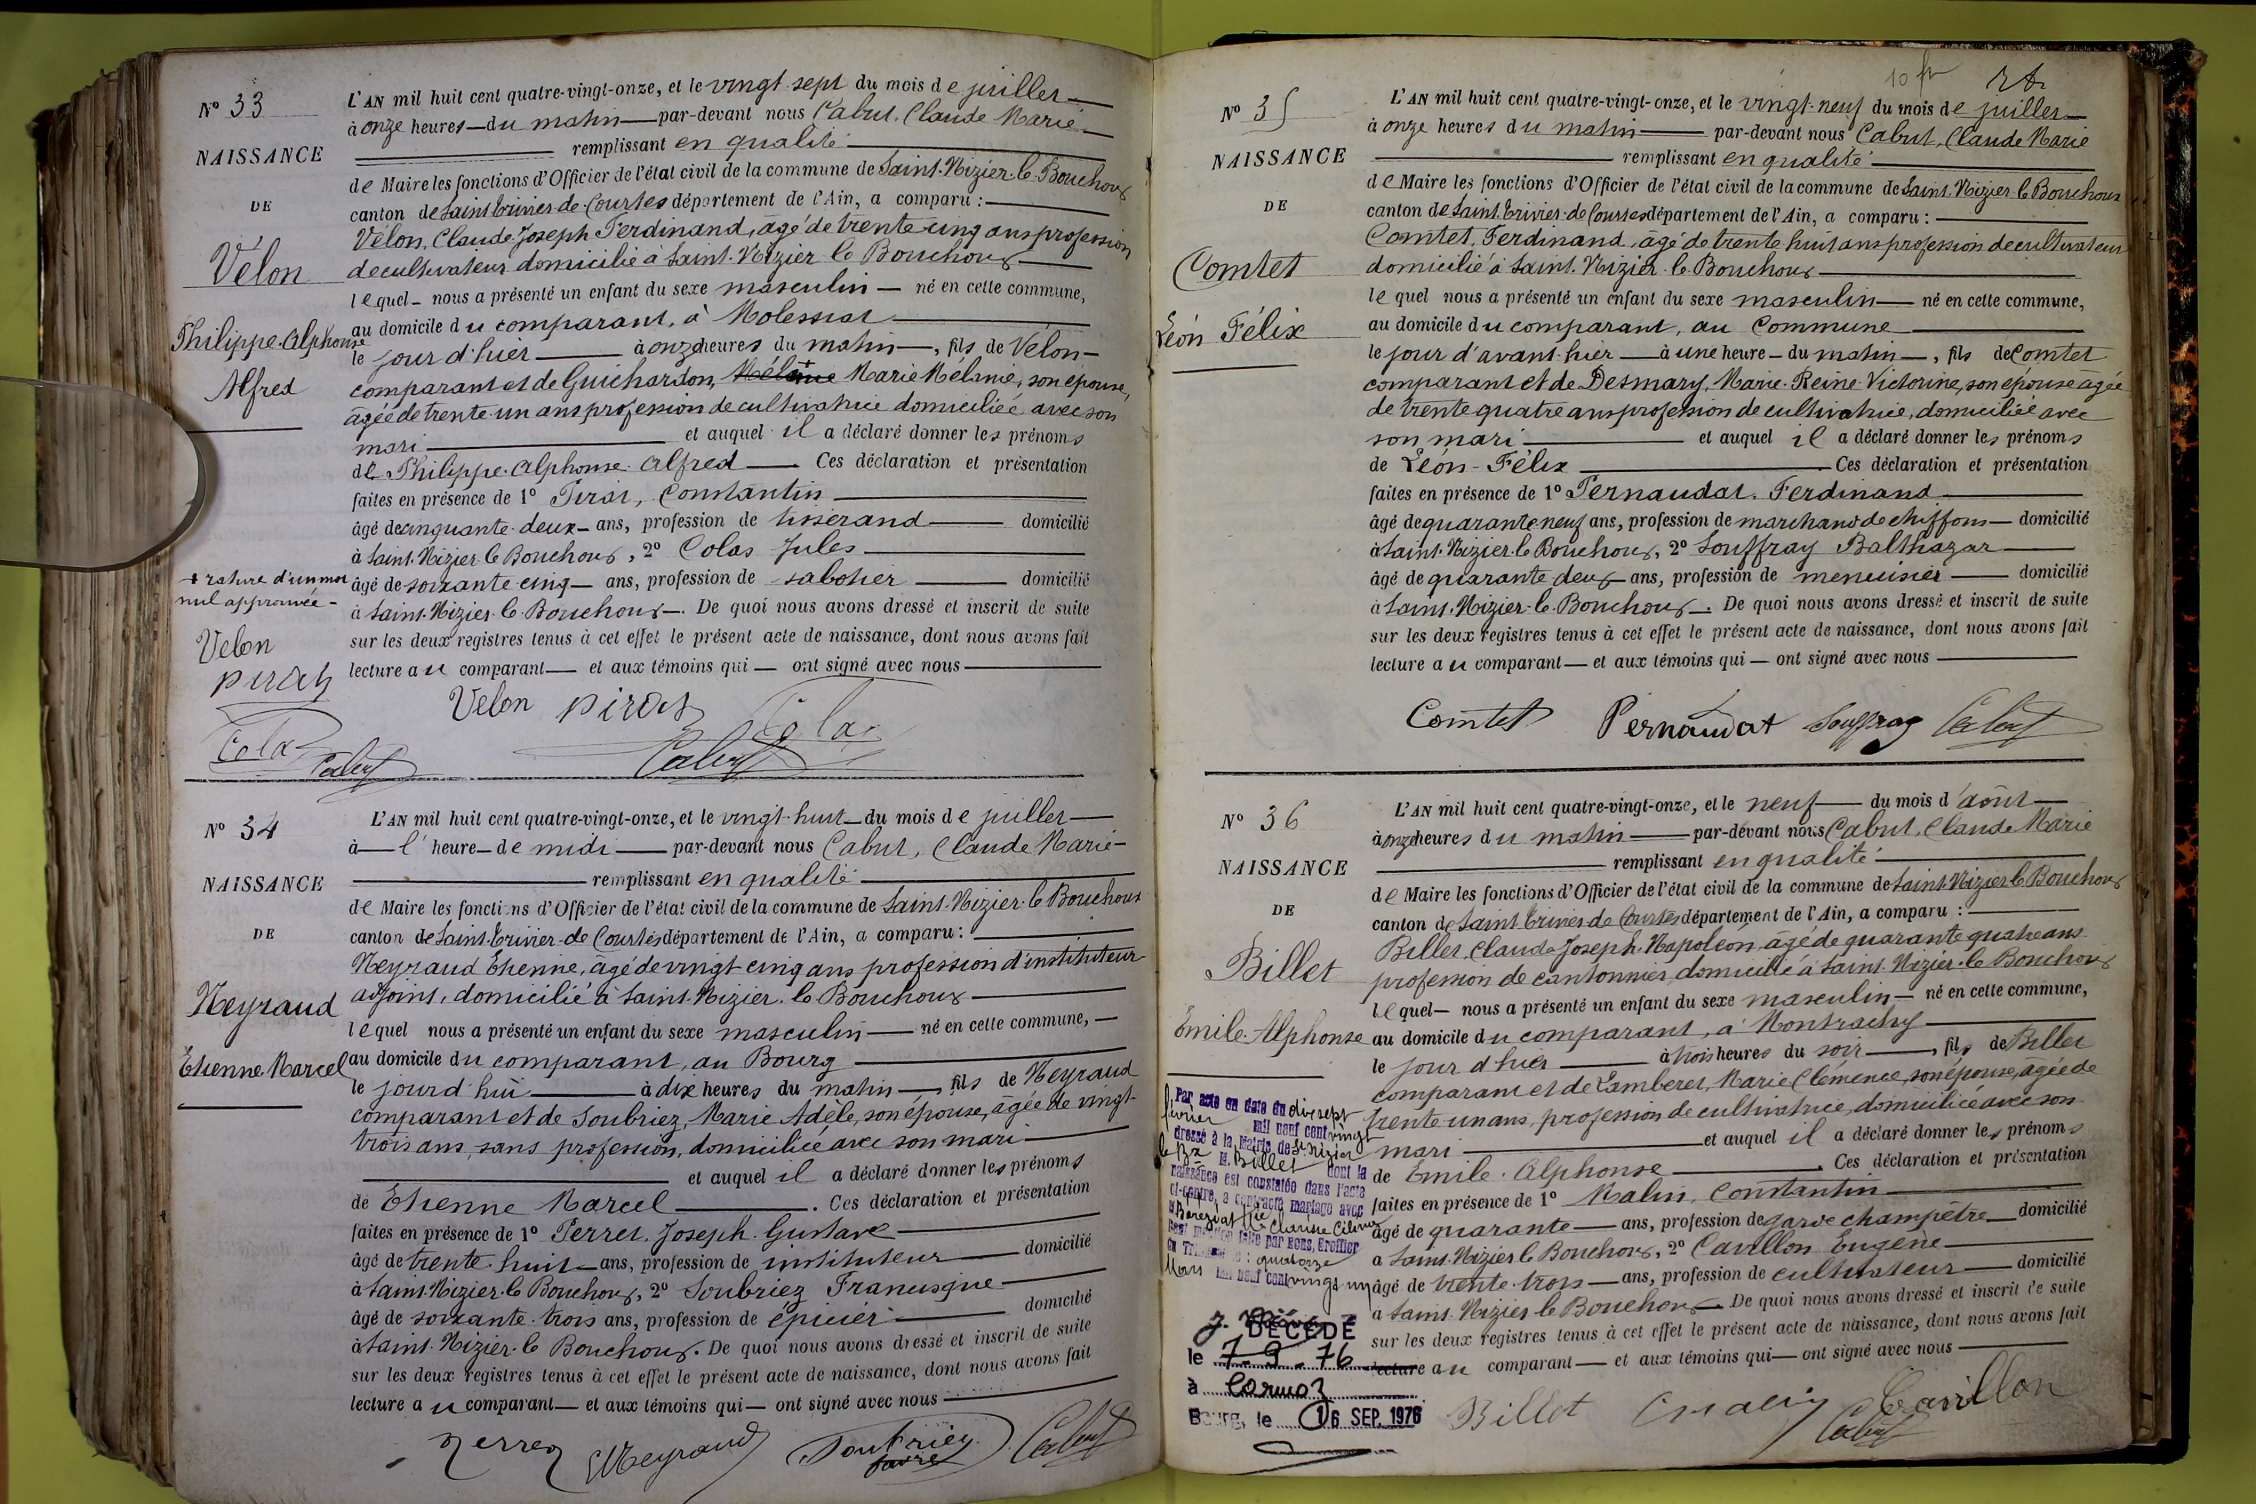 N° 33
NAISSANCE
DE
Vélon
Philippe-Alphonse
Alfred
+ rature d'un mot
nul approuvée -
Velon
Pirat
Colas
Cabut
L'AN mil huit cent quatre-vingt-onze, et le vingt-sept du mois de juillet
à onze heures du matin par-devant nous Cabut, Claude Marie
remplissant en qualité
de Maire les fonctions d'Officier de l'état civil de la commune de Saint-Nizier-le-Bouchoux
canton de Saint-Trivier-de-Courtes département de l'Ain, a comparu :
Vélon, Claude-Joseph Ferdinand, âgé de trente-cinq ans profession
de cultivateur domicilié à Saint-Nizier-le-Bouchoux
lequel nous a présenté un enfant du sexe masculin né en cette commune,
au domicile du comparant, à Molessiat
le jour d'hier à onze heures du matin, fils de Vélon
comparant et de Guichardon, Mélanie + Marie Mélanie, son épouse,
âgée de trente-un ans profession de cultivatrice domiciliée avec son
mari et auquel il a déclaré donner les prénoms
de Philippe-Alphonse-Alfred Ces déclaration et présentation
faites en présence de 1° Pirat, Constantin
âgé de cinquante-deux ans, profession de tisserand domicilié
à Saint-Nizier-le-Bouchoux, 2° Colas Jules
âgé de soixante cinq ans, profession de sabotier domicilié
à Saint-Nizier-le-Bouchoux. De quoi nous avons dressé et inscrit de suite
sur les deux registres tenus à cet effet le présent acte de naissance, dont nous avons fait
lecture au comparant et aux témoins qui ont signé avec nous
Velon Pirat Colas
Cabut
N° 34
NAISSANCE
DE
Neyraud
Etienne Marcel
L'AN mil huit cent quatre-vingt-onze, et le vingt-huit du mois de juillet
à l'heure de midi par-devant nous Cabut, Claude Marie
remplissant en qualité
de Maire les fonctions d'Officier de l'état civil de la commune de Saint-Nizier-le-Bouchoux
canton de Saint-Trivier-de-Courtes département de l'Ain, a comparu :
Neyraud Etienne, âgé de vingt-cinq ans profession d'instituteur
adjoint, domicilié à Saint-Nizier-le-Bouchoux
lequel nous a présenté un enfant du sexe masculin né en cette commune,
au domicile du comparant, au Bourg
le jourd'hui à dix heures du matin, fils de Neyraud
comparant et de Soubriez, Marie Adèle, son épouse, âgée de vingt-
trois ans, sans profession, domiciliée avec son mari
et auquel il a déclaré donner les prénoms
de Etienne Marcel. Ces déclaration et présentation
faites en présence de 1° Perret, Joseph-Gustave
âgé de trente-huit ans, profession de instituteur domicilié
à Saint-Nizier-le-Bouchoux, 2° Soubriez Francisque
âgé de soixante-trois ans, profession de épicier domicilié
à Saint-Nizier-le-Bouchoux. De quoi nous avons dressé et inscrit de suite
sur les deux registres tenus à cet effet le présent acte de naissance, dont nous avons fait
lecture au comparant et aux témoins qui ont signé avec nous
Perret ENeyraud Soubriez Cabut
10 fr
N° 35
NAISSANCE
DE
Comtet
Léon Félix
L'AN mil huit cent quatre-vingt-onze, et le vingt-neuf du mois de juillet
à onze heures du matin par-devant nous Cabut, Claude Marie
remplissant en qualité
de Maire les fonctions d'Officier de l'état civil de la commune de Saint-Nizier-le-Bouchoux
canton de Saint-Trivier-de-Courtes département de l'Ain, a comparu :
Comtet, Ferdinand, âgé de trente-huit ans profession de cultivateur
domicilié à Saint-Nizier-le-Bouchoux
lequel nous a présenté un enfant du sexe masculin né en cette commune,
au domicile du comparant, au Commune
le jour d'avant-hier à une heure du matin, fils de Comtet
comparant et de Desmary, Marie-Reine-Victorine, son épouse âgée
de trente quatre ans profession de cultivatrice, domiciliée avec
son mari et auquel il a déclaré donner les prénoms
de Léon-Félix Ces déclaration et présentation
faites en présence de 1° Pernaudat, Ferdinand
âgé de quarante-neuf ans, profession de marchand de chiffons domicilié
à Saint-Nizier-le-Bouchoux, 2° Souffray Balthazar
âgé de quarante deux ans, profession de menuisier domicilié
à Saint-Nizier-le-Bouchoux. De quoi nous avons dressé et inscrit de suite
sur les deux registres tenus à cet effet le présent acte de naissance, dont nous avons fait
lecture au comparant et aux témoins qui ont signé avec nous
Comtet Pernaudat Souffray Cabut
N° 36
NAISSANCE
DE
Billet
Emile-Alphonse
Par acte en date du dix sept
février mil neuf cent vingt
dressé à la Mairie de St Nizier
le Bx M. Billet dont la
naissance est constatée dans l'acte
ci-contre, a contracté mariage avec
Clarisse
faite par nous, Greffier
du quatorze
Mars mil neuf cent vingt un
DÉCÉDÉ
le 7-9-76
à Cormoz
Bourg, le 16 SEP. 1976
L'AN mil huit cent quatre-vingt-onze, et le neuf du mois d'août
à onze heures du matin par-devant nous Cabut, Claude Marie
remplissant en qualité
de Maire les fonctions d'Officier de l'état civil de la commune de Saint-Nizier-le-Bouchoux
canton de Saint-Trivier-de-Courtes département de l'Ain, a comparu :
Billet, Claude-Joseph-Napoléon, âgé de quarante quatre ans
profession de cantonnier, domicilié à Saint-Nizier-le-Bouchoux
lequel nous a présenté un enfant du sexe masculin né en cette commune,
au domicile du comparant, à Montrachy
le jour d'hier à trois heures du soir, fils de Billet
comparant et de Lamberet, Marie Clémence, son épouse, âgée de
trente-un ans, profession de cultivatrice, domiciliée avec son
mari et auquel il a déclaré donner les prénoms
de Emile-Alphonse. Ces déclaration et présentation
faites en présence de 1° Malin, Constantin
âgé de quarante ans, profession de garde champêtre domicilié
à Saint-Nizier-le-Bouchoux, 2° Cavillon Eugène
âgé de trente-trois ans, profession de cultivateur domicilié
à Saint-Nizier-le-Bouchoux. De quoi nous avons dressé et inscrit de suite
sur les deux registres tenus à cet effet le présent acte de naissance, dont nous avons fait
lecture au comparant et aux témoins qui ont signé avec nous
Billet Malin Cavillon
Cabut